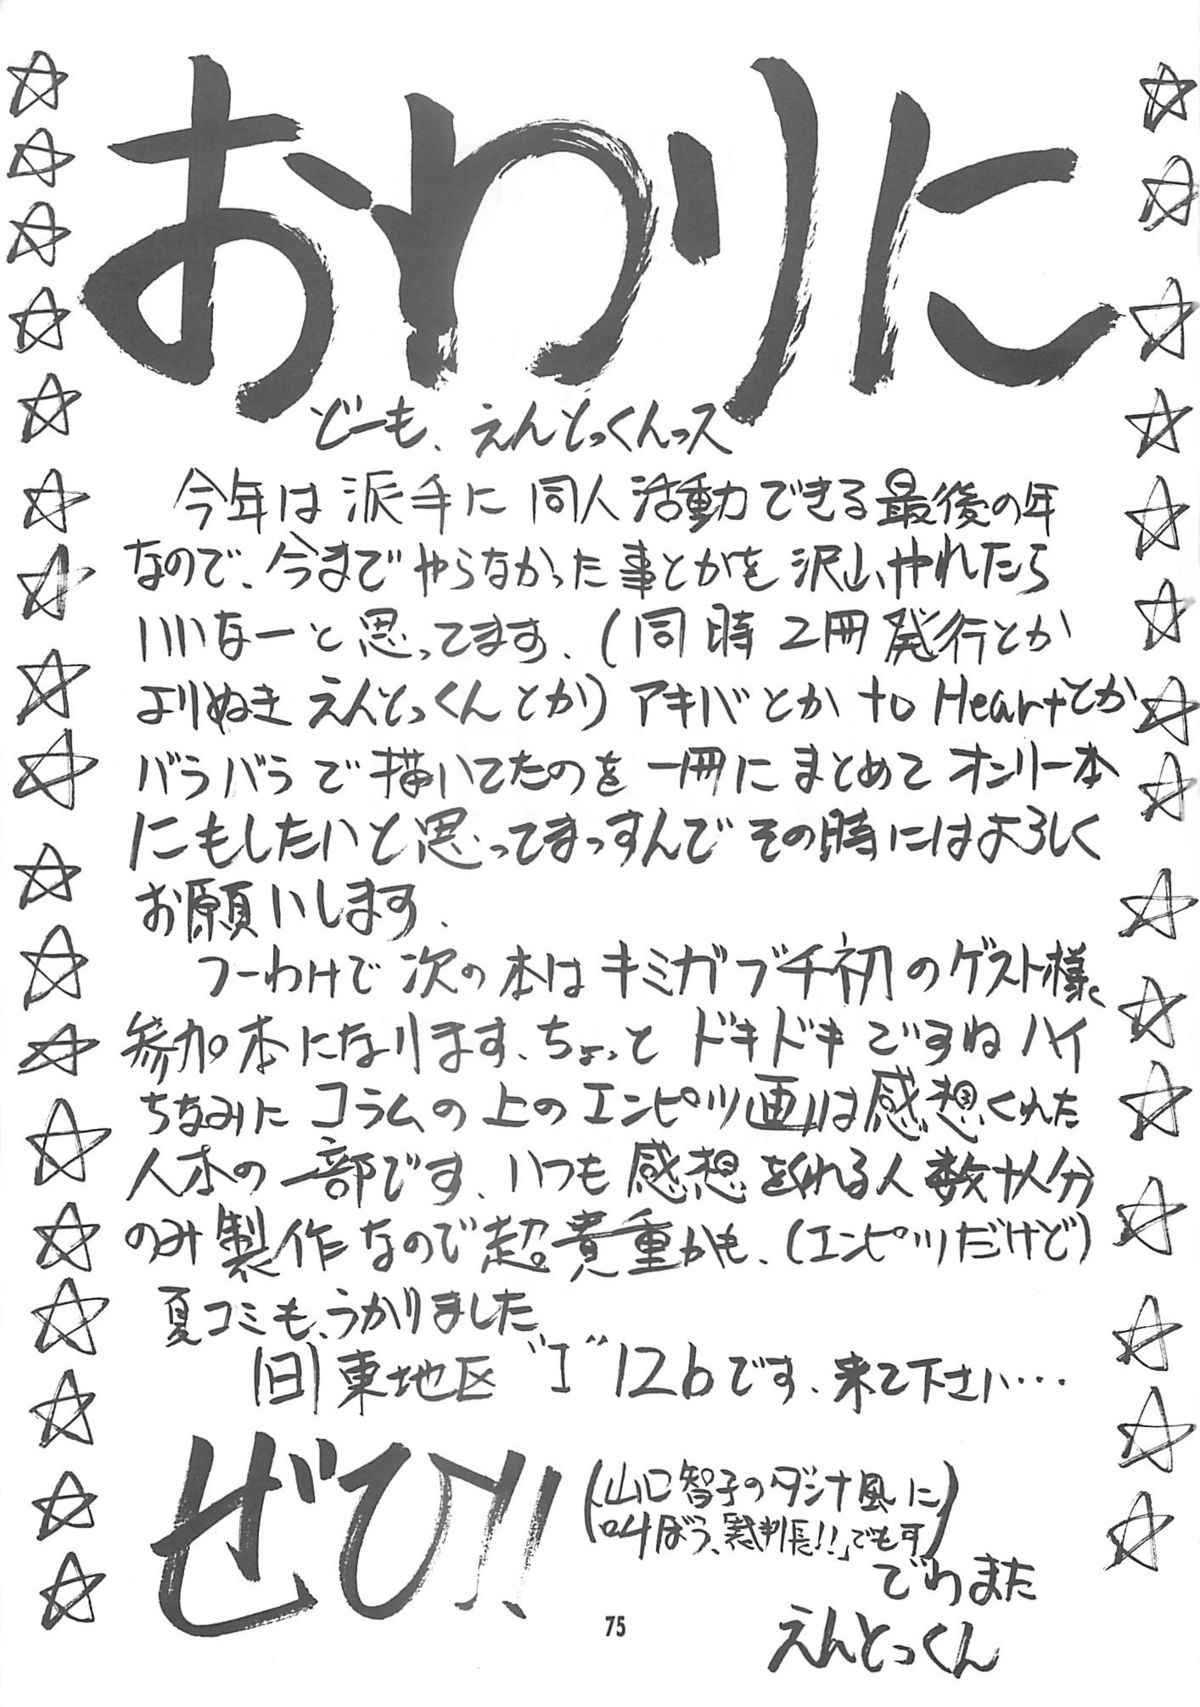 おわりに
どーも、えんとっくんっス
今年は派手に同人活動できる最後の年
なので、今までやらなかった事とかを沢山やれたら
いいなーと思ってます、(同時2冊発行とか
よりぬきえんとっくんとか)アキバとかto Heartとか
バラバラで描いてたのを一冊にまとめてオンリー本
にもしたいと思ってまっすんでその時にはよろしく
お願いします、
つーわけで次の本はキミガブチ初のゲスト様
参加本になります、ちょっとドキドキですねハイ
ちなみにコラムの上のエンピツ画は感想くれた
人本の一部です、いつも感想をくれる人数+α人分
のみ製作なので超貴重かも、(エンピツだけど)
夏コミも、うかりました
(日)東地区"I"12bです、来て下さい…
ぜひ!!
(山口智子のダシナ風に
叫ぼう、「裁判長!!」でも可)
でわまた
えんとっくん
75